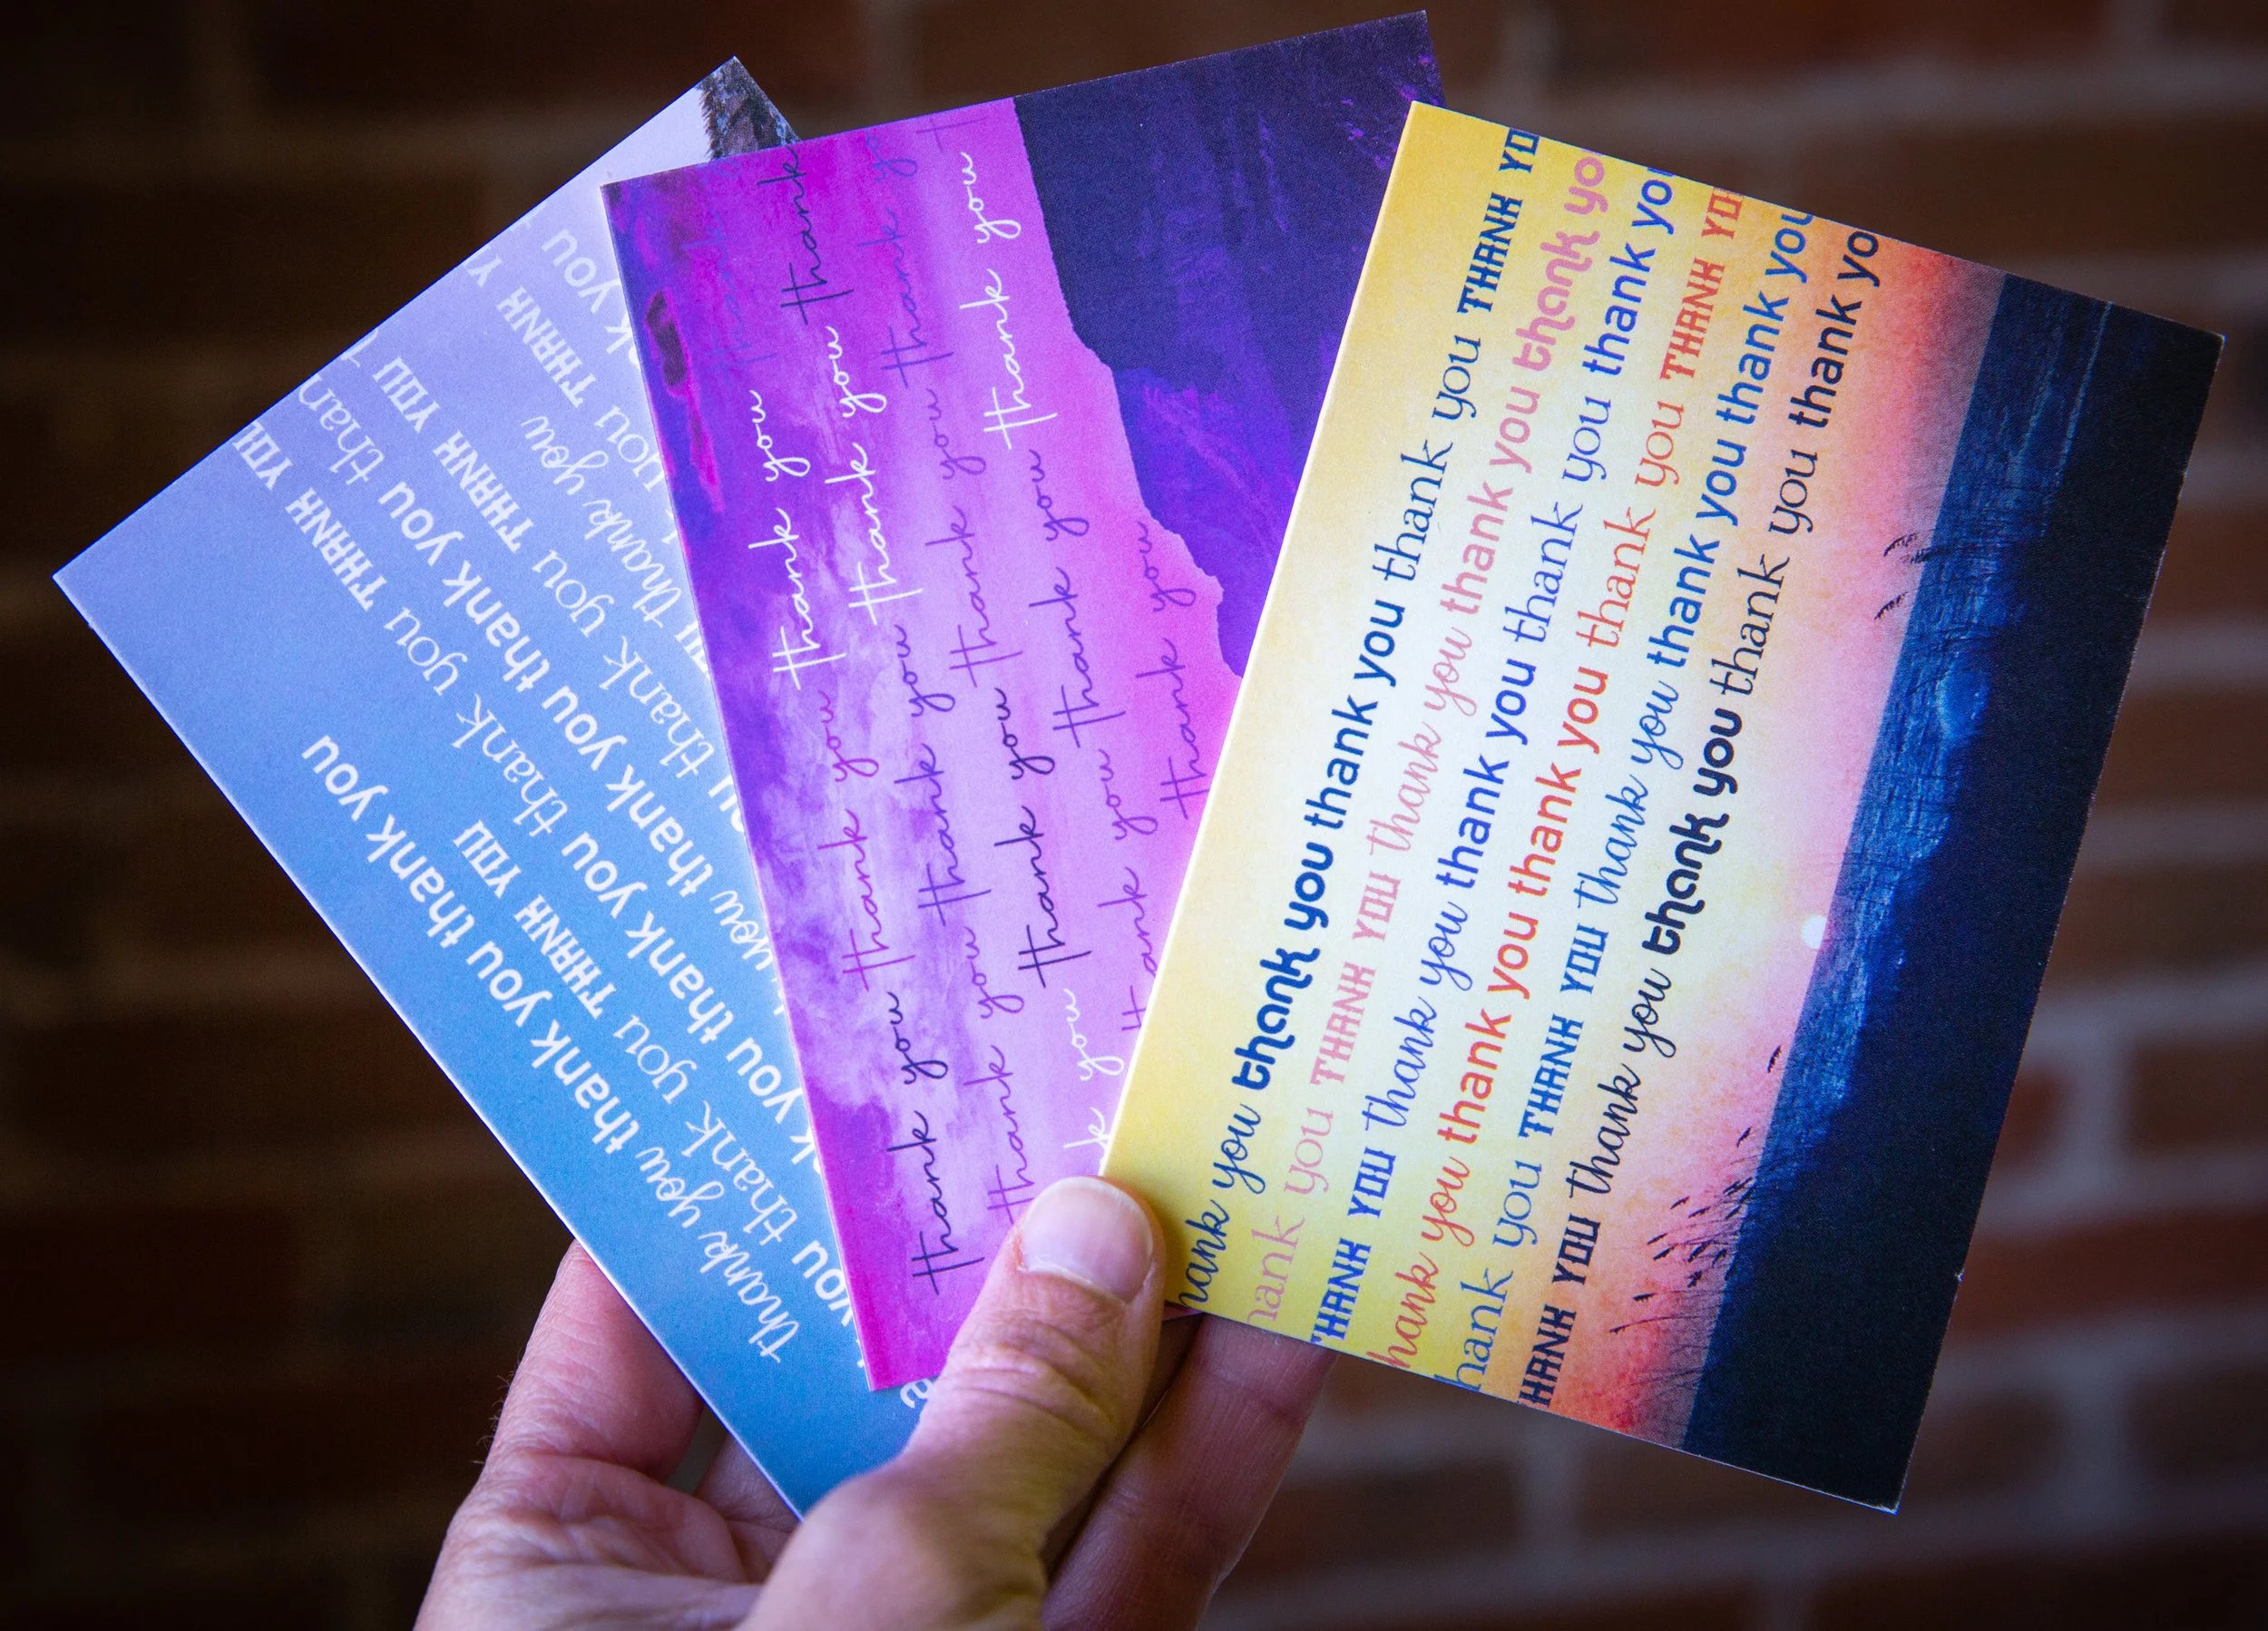 thank you thank you thank you thank you
you thank you THANK YOU
you thank you thank you THANK YOU
you thank you thank you than
thank you THANK YOU
thank you THANK Y
you THANK
you
thank you thank
thank you thank you thank
thank you thank you thank y
thank you thank you thank you
thank you thank you
you thank you thank you
hank you thank you thank you thank you THANK YO
hank you THANK YOU thank you thank you thank yo
THANK YOU thank you thank you thank you thank yo
hank you thank you thank you thank you THANK YO
hank you THANK YOU thank you thank you thank you
HANK YOU thank you thank you thank you thank yo